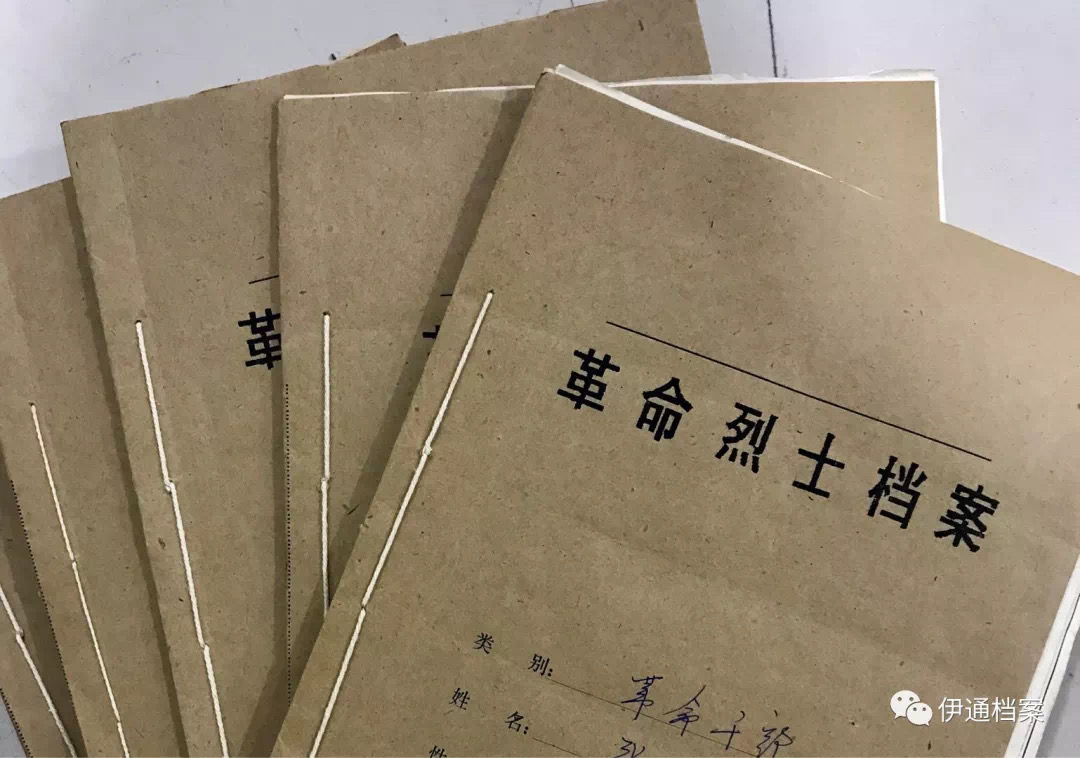 革
革命烈士档案
类 别:革命干部
姓 名:
性
伊通档案